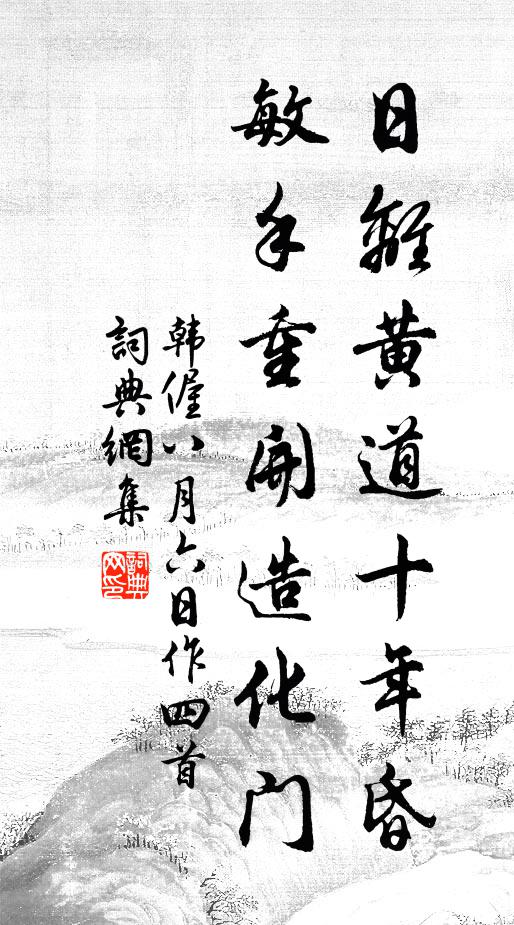 日離黃道十年昏
敏手重開造化門
韩偓八月六日作四首
詞典網集
詞典
网印